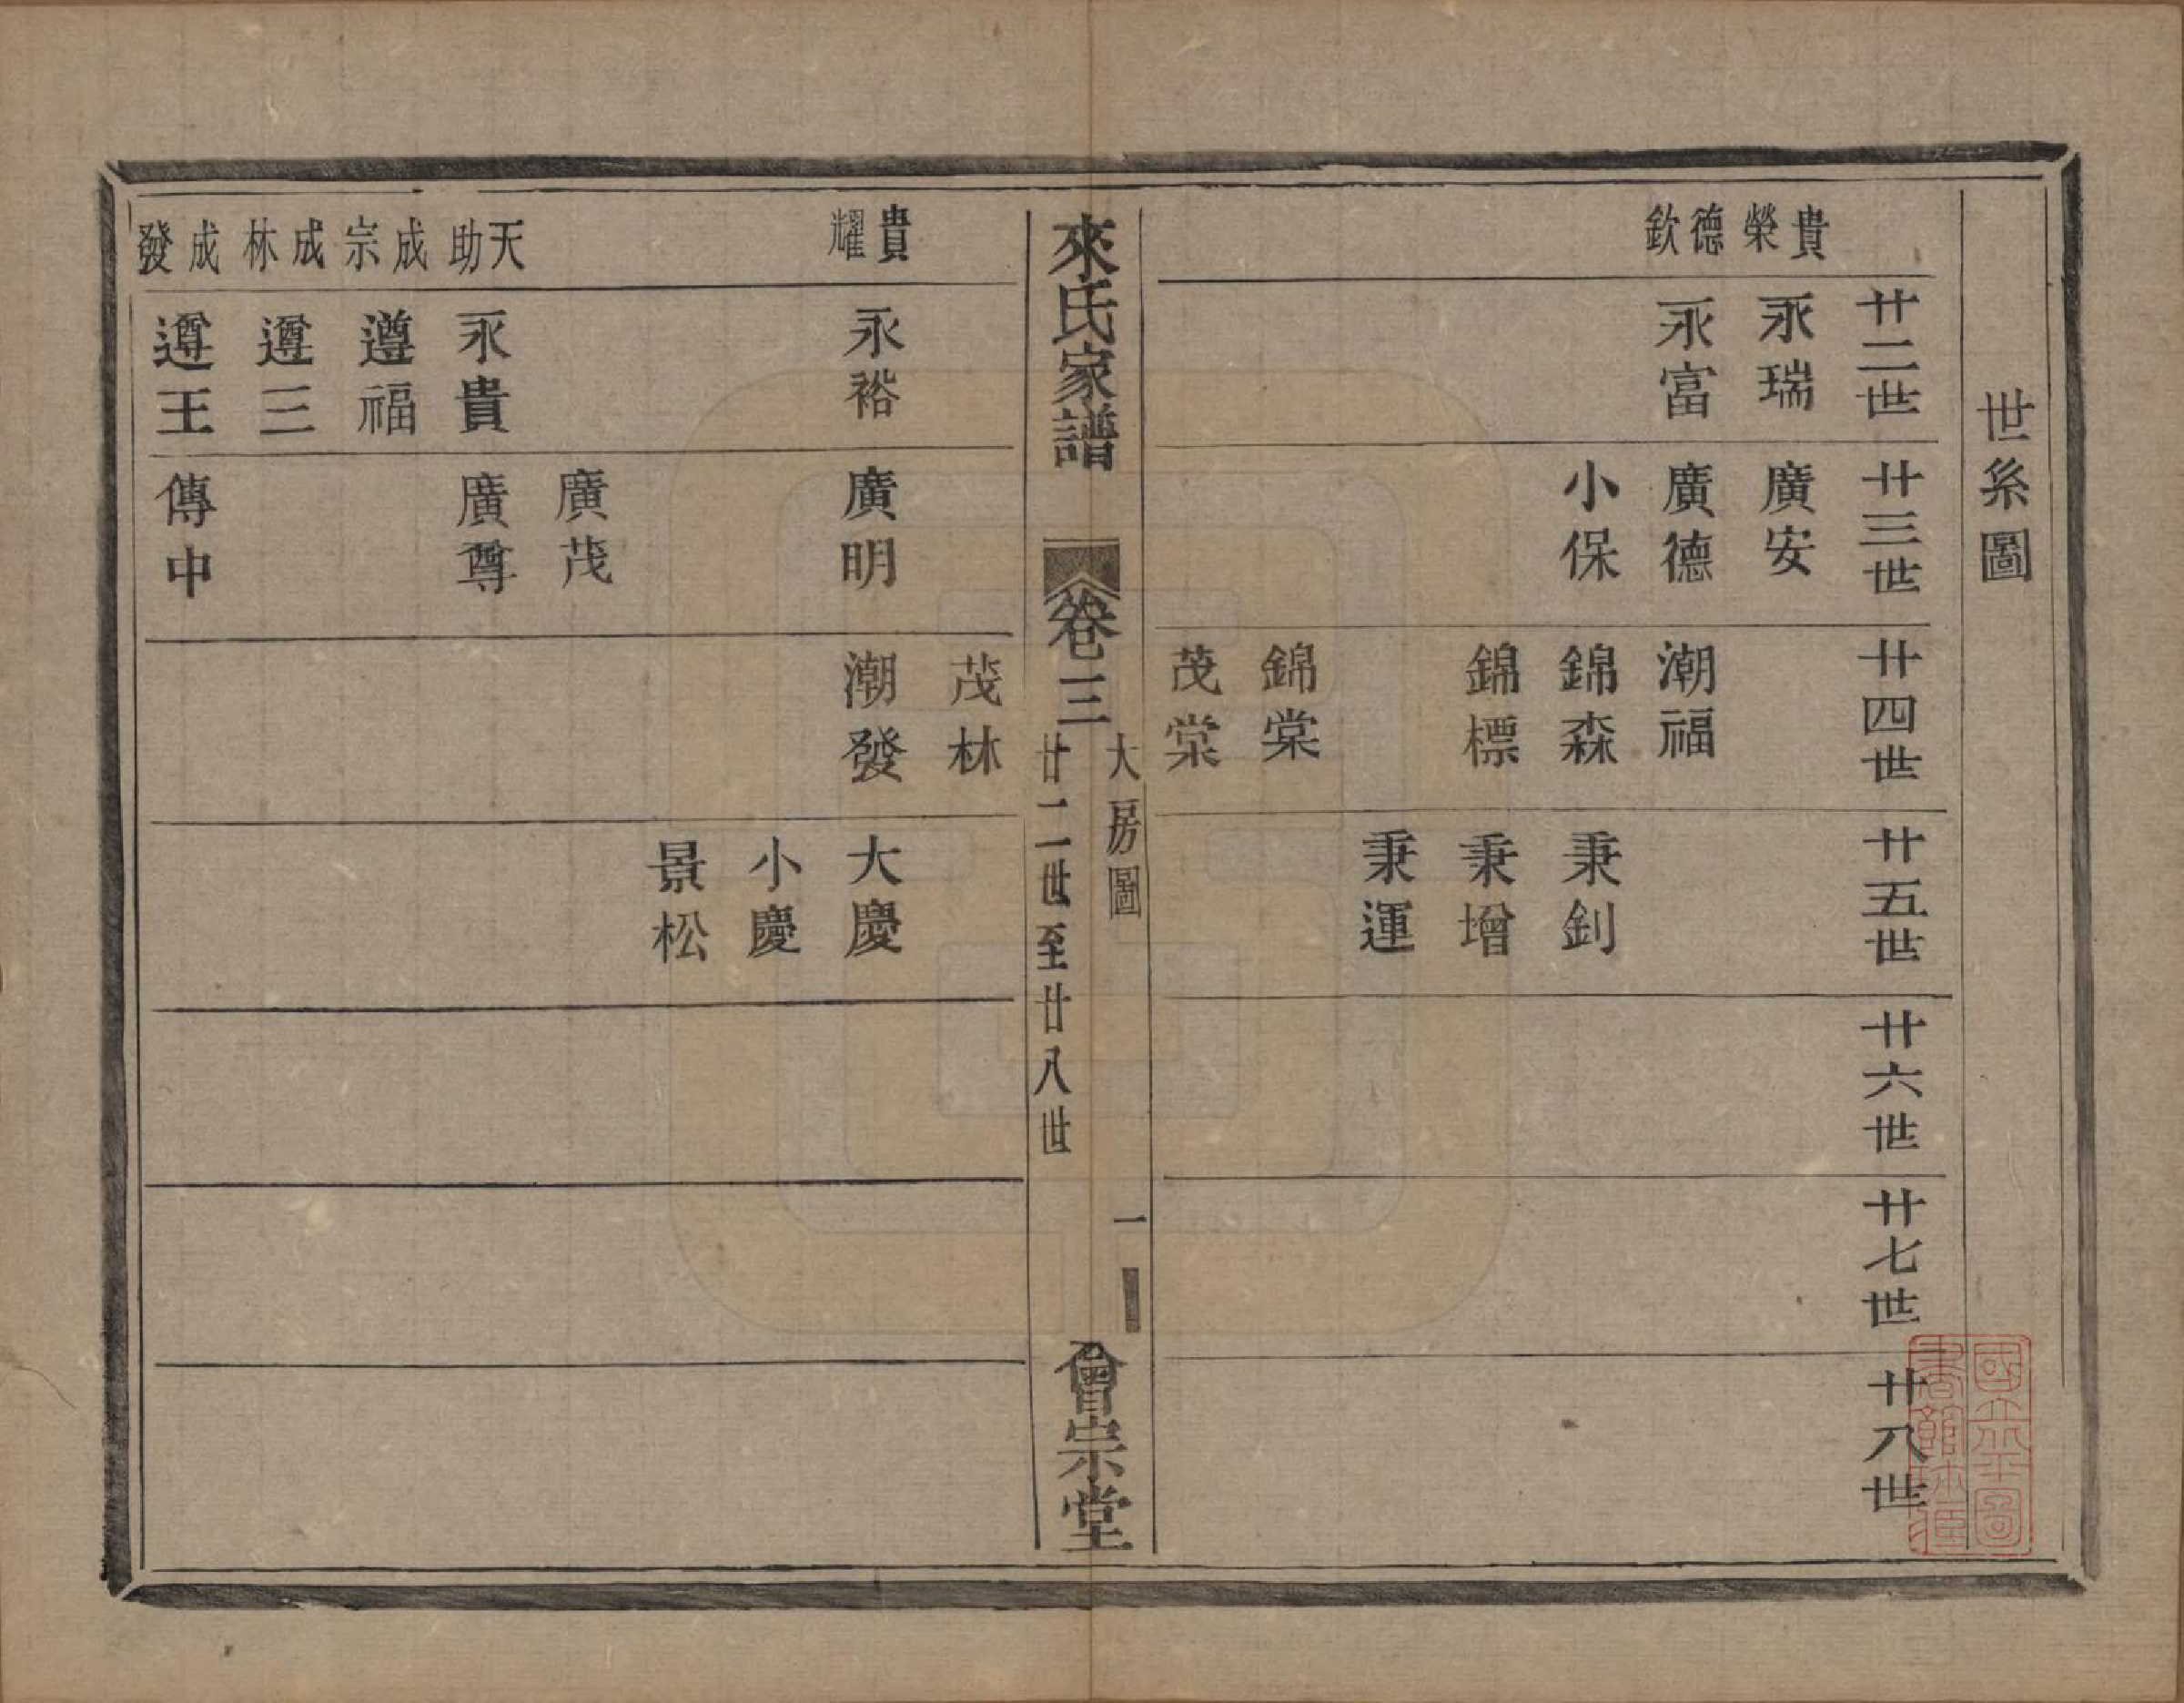 世系圖
廿二世
廿三世
廿四世
廿五世
廿六世
廿七世
廿八世
貴榮
永瑞
廣安
德欽
永富
廣德
潮福
小保
錦森
秉釗
錦標
秉增
秉運
錦棠
茂棠
來氏家譜
卷三
大房圖
廿二世至廿八世
一
會宗堂
茂林
貴耀
永裕
廣明
潮發
大慶
小慶
景松
廣茂
天助
永貴
廣尊
成宗
遵福
成林
遵三
成發
遵王
傳中
國立北平圖
書館珍藏